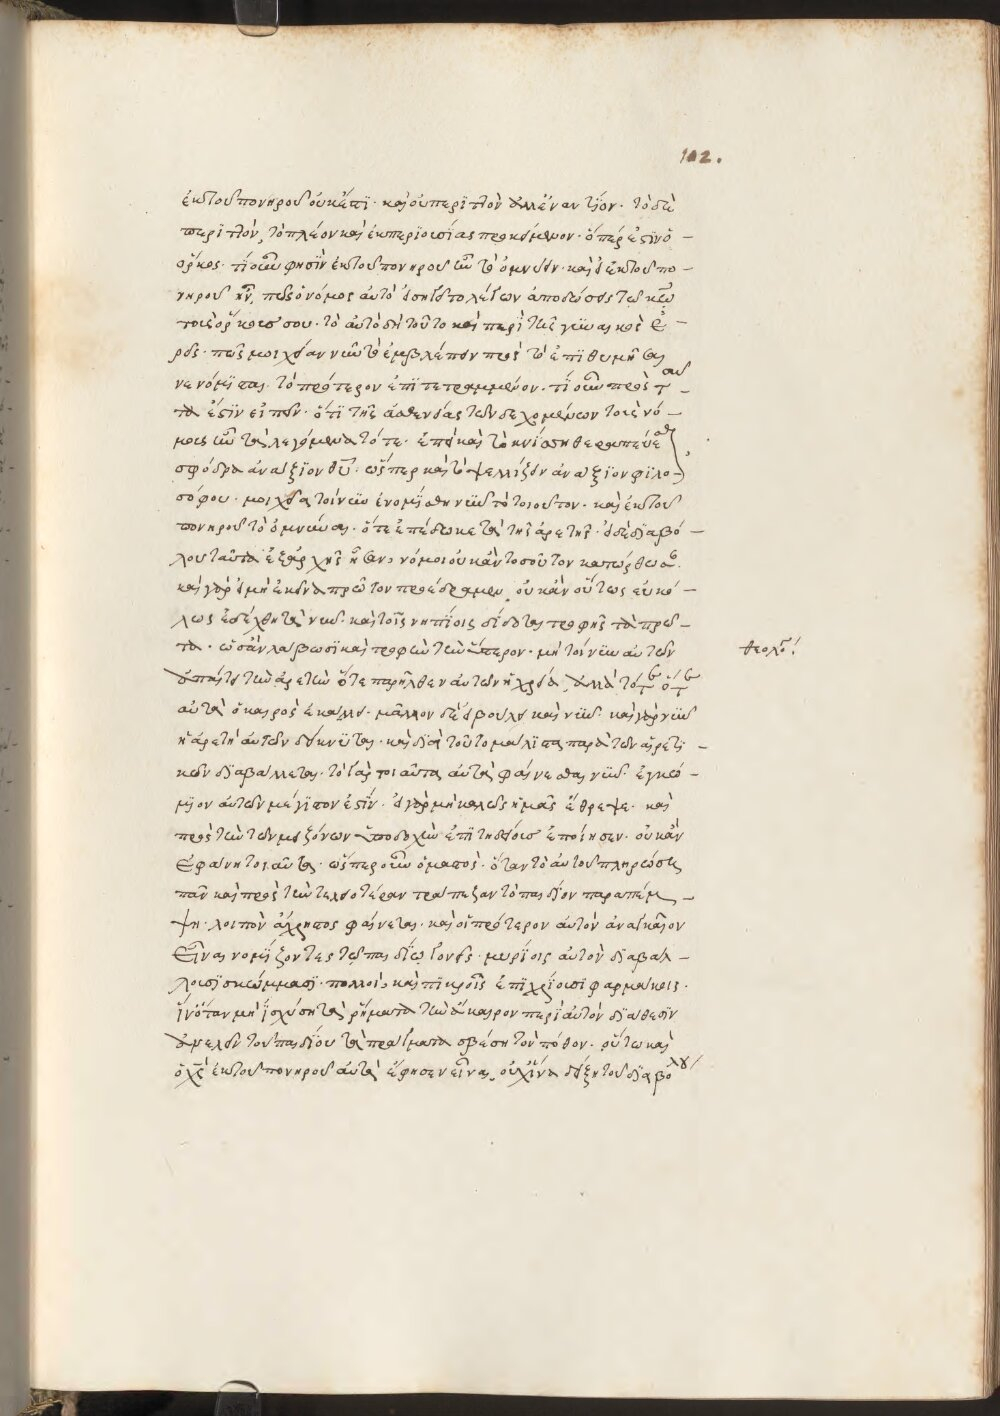 102.
ἐκ τοῦ πονηροῦ οὐκ ἔτι· καὶ οὐ περιττὸν ἀλλ' ἐναντίον· τὸ δὲ
περιττὸν, τὸ πλέον καὶ ἐκ περιουσίας προσκείμενον· ὅπερ ἐστὶν ὁ
ὅρκος· τί οὖν φησὶν ἐκ τοῦ πονηροῦ ἦν τὸ ὀμνύειν· καὶ εἰ ἐκ τοῦ πο
νηροῦ ἦν, πῶς ὁ νόμος αὐτὸ λέγων ἀποδώσεις τῷ κῶ
τοὺς ὅρκους σου· τὸ αὐτὸ δὴ τοῦτο καὶ περὶ τῆς γυναικὸς ἐ
ρεῖς· πῶς μοιχείαν νῦν τὸ ἐμβλέπειν πρὸς τὸ ἐπιθυμῆσαι
νενόμισται· τὸ πρότερον ἐπιτετραμμένον· τί οὖν πρὸς ταῦ
τα ἐστὶν εἰπεῖν· ὅτι τῆς ἀσθενείας τῶν δεχομένων τοὺς νό
μους ἦν τὰ λεγόμενα τότε· ἐπεὶ καὶ τὸ κνίσῃ θεραπεύεσθαι
σφόδρα ἀνάξιον θῦ· ὥσπερ καὶ τὸ ψελλίζειν ἀνάξιον φιλο
σόφου· μοιχεία τοίνυν ἐνομίσθη νῦν τὸ τοιοῦτον· καὶ ἐκ τοῦ
πονηροῦ τὸ ὀμνύναι· ὅτε ἐπέδωκε τὰ τῆς ἀρετῆς· εἰ δὲ διαβό
λου ταῦτα ἐξ ἀρχῆς ἦσαν νόμοι οὐκ ἂν τοσοῦτον κατώρθωσαν·
καὶ γὰρ εἰ μὴ ἐκεῖνα πρῶτον προέδραμεν, οὐκ ἂν οὕτως εὐκό
λως ἐδέχθη τὰ νῦν· καὶ τοῖς νηπίοις δίδοται τροφῆς τὰ πρῶ
τα· ὡς ἂν λάβωσι καὶ τροφὴν τὴν ὕστερον· μὴ τοίνυν αὐτῶν
ἀπαίτει τὴν ἀρετὴν ὅτε παρῆλθεν αὐτῶν ἡ χρεία, ἀλλὰ τότε ὅτε
αὐτὰ ὁ καιρὸς ἐκάλει· μᾶλλον δὲ εἰ βούλει καὶ νῦν· καὶ γὰρ νῦν
ἡ ἀρετὴ αὐτῶν δείκνυται· καὶ διὰ τοῦτο μάλιστα παρὰ τῶν αἱρετι
κῶν διαβάλλεται· τὸ γάρ τοιαῦτα αὐτὰ φαίνεσθαι νῦν· ἐγκώ
μιον αὐτῶν μέγιστον ἐστίν· εἰ γὰρ μὴ καλῶς ἡμᾶς ἔθρεψε· καὶ
πρὸς τὴν τῶν μειζόνων ὑποδοχὴν ἐπιτηδείους ἐποίησεν· οὐκ ἂν
ἐφάνη τοιαῦτα· ὥσπερ οὖν ὁ μαστὸς· ὅταν τὸ αὐτοῦ πληρώσῃ
πᾶν καὶ πρὸς τὴν τελειοτέραν τράπεζαν τὸ παιδίον παραπέμ
ψῃ· λοιπὸν ἄχρηστος φαίνεται· καὶ οἱ πρότερον αὐτὸν ἀναγκαῖον
εἶναι νομίζοντες τῷ παιδίῳ γονεῖς· μυρίοις αὐτὸν διαβάλ
λουσι σκώμμασι· πολλοὶ, καὶ πικροῖς ἐπιχρίουσι φαρμάκοις·
ἵν' ὅταν μὴ ἰσχύσῃ τὰ ῥήματα τὴν ἄκαιρον περὶ αὐτὸν διάθεσιν
ἀνελεῖν τοῦ παιδίου τὰ πράγματα σβέσῃ τὸν πόθον· οὕτω καὶ
ὁ χς ἐκ τοῦ πονηροῦ αὐτὰ ἔφησεν εἶναι, οὐχ ἵνα δείξῃ τοῦ διαβόλου